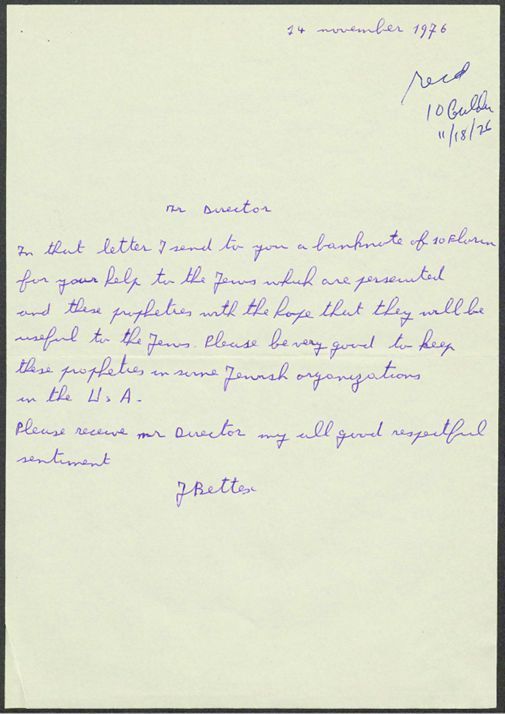 14 november 1976
recd
10 Gulden
11/18/76
Mr Director
In that letter I send to you a banknote of 10 Florin
for your help to the Jews which are persecuted
and these propheties with the hope that they will be
useful to the Jews. Please be very good to keep
these propheties in some Jewish organizations
in the U.S.A.
Please receive mr Director my all good respectful
sentiment
J Bettex